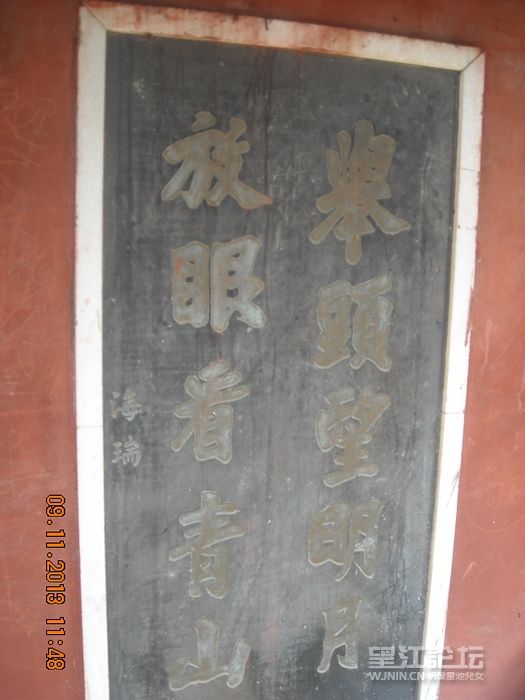 舉頭望明月
放眼看青山
海瑞
09.11.2013 11:48
望江論坛
WJNIN.CN